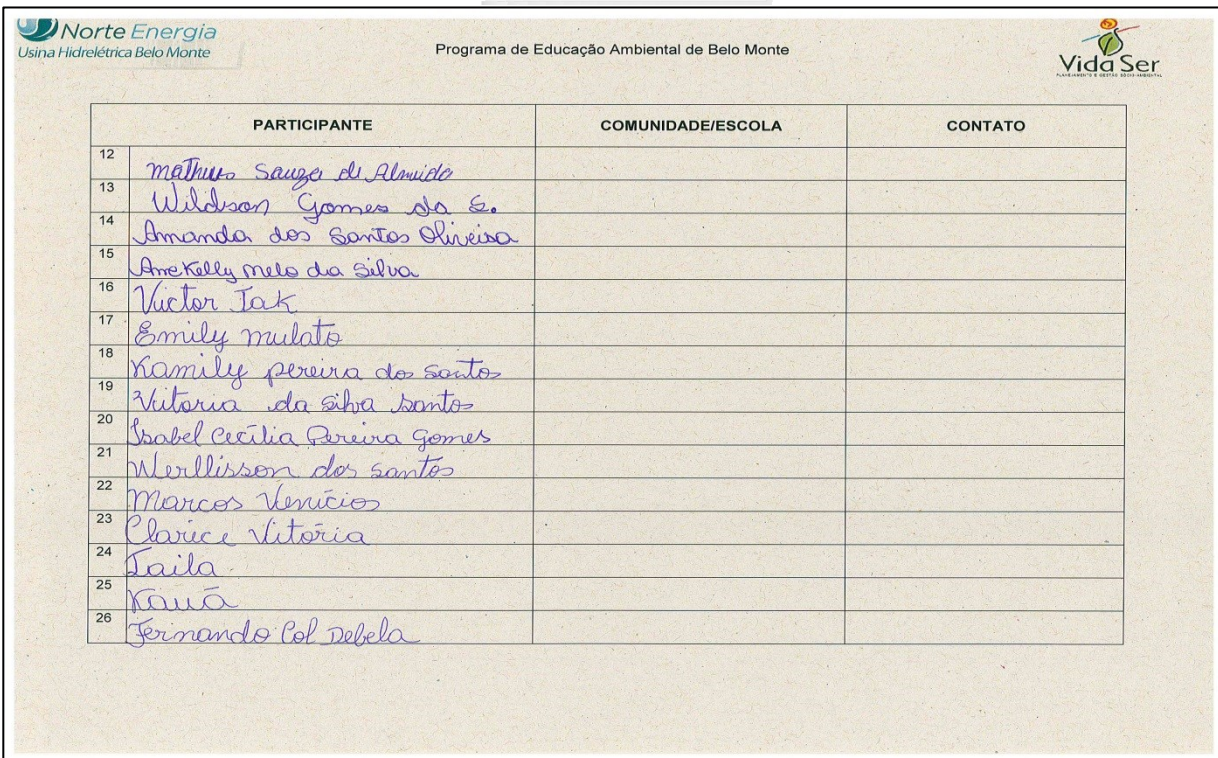 Norte Energia
Usina Hidrelétrica Belo Monte
Programa de Educação Ambiental de Belo Monte
Vida Ser
PLANEJAMENTO E GESTÃO SÓCIO-AMBIENTAL
PARTICIPANTE COMUNIDADE/ESCOLA CONTATO
12 Matheus Sauza de Almeida
13 Wildson Gomes da S.
14 Amanda dos Santos Oliveira
15 Anekelly melo da Silva
16 Victor Iak
17 Emily mulato
18 Kamily pereira do Santos
19 Vitoria da silva santos
20 Isabel Cecília Pereira Gomes
21 Werllisson dos santos
22 Marcos Venicios
23 Clarice Vitória
24 Taila
25 Kauã
26 Fernando Col Debela